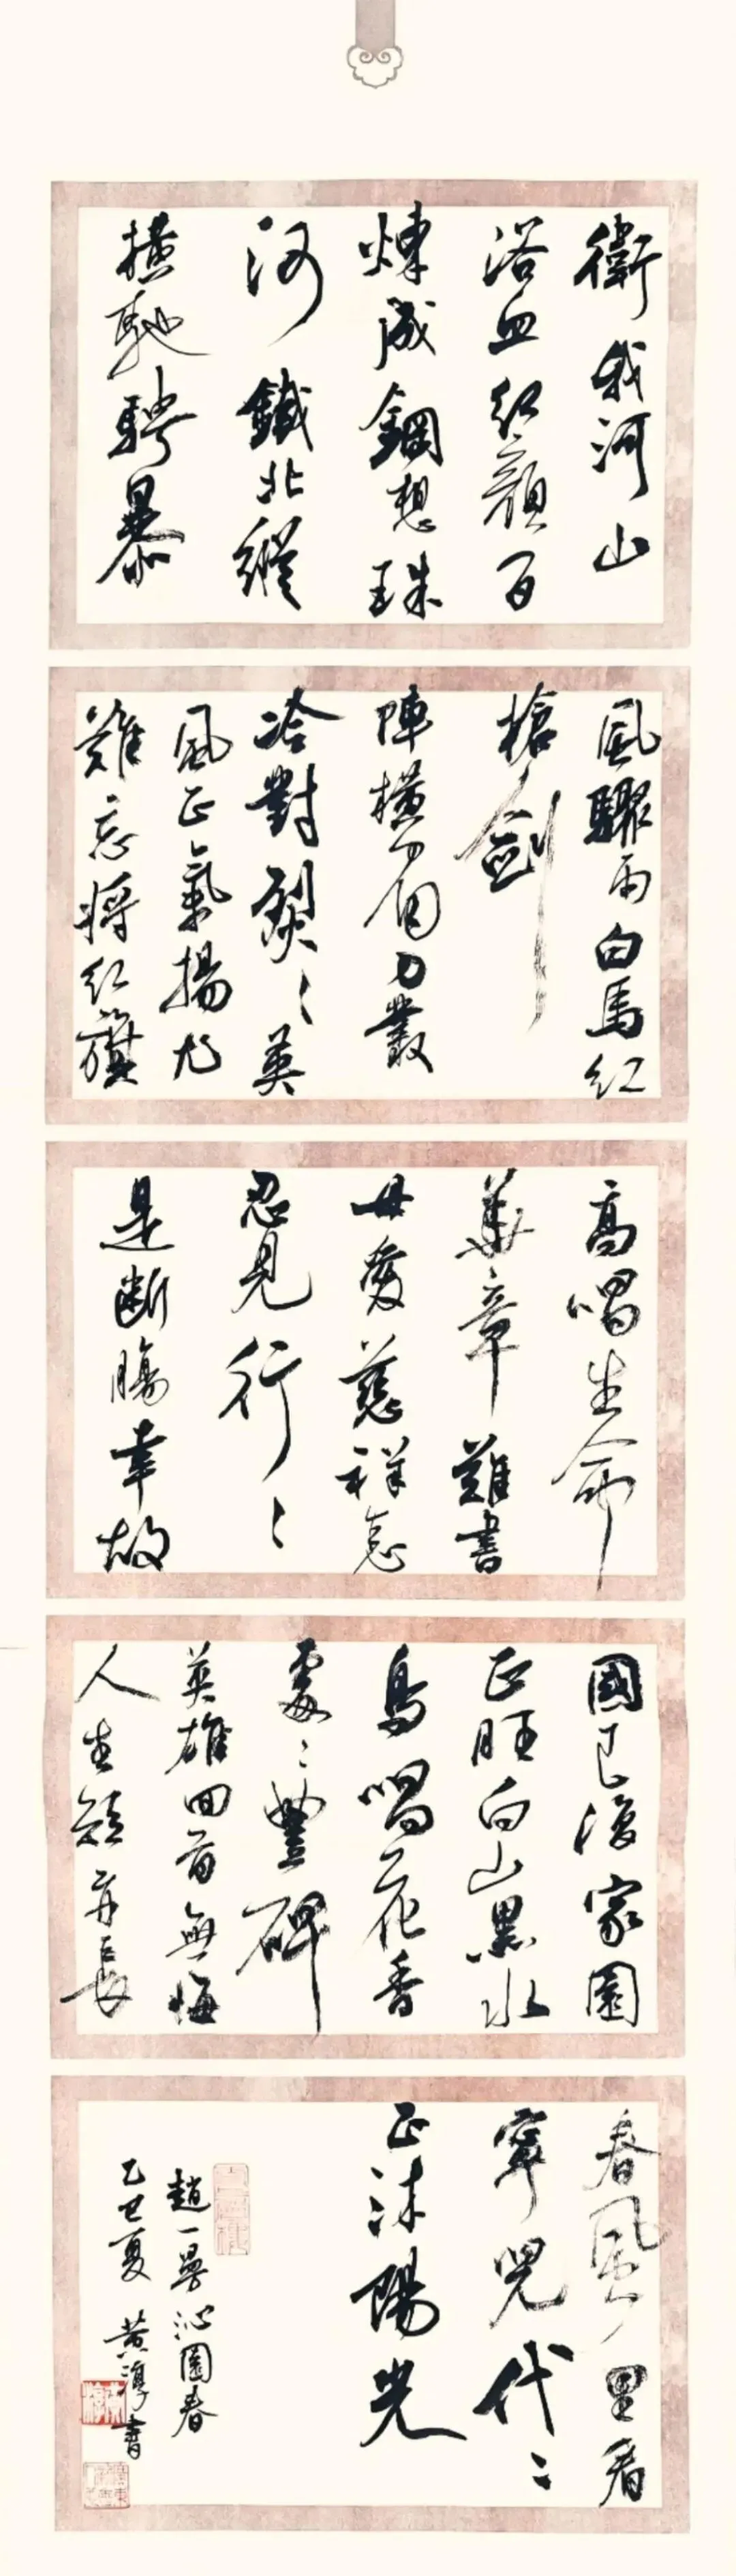 衛我河山
浴血紅顏百
煉成鋼想珠
河鐵北縱
橫馳騁暴
風驟雨白馬紅
槍劍
陣橫眉刀叢
冷對烈烈英
風正氣揚尤
難忘將紅旗
高唱生命
華章難書
母愛慈祥忍
忍見行行
是斷腸幸故
國已復家園
正旺白山黑水
鳥唱花香
處處豐碑
英雄回首無悔
人生短亦長
春風里看
寧兒代代
正沐陽光
趙一曼沁園春
乙巳夏 黃淳書